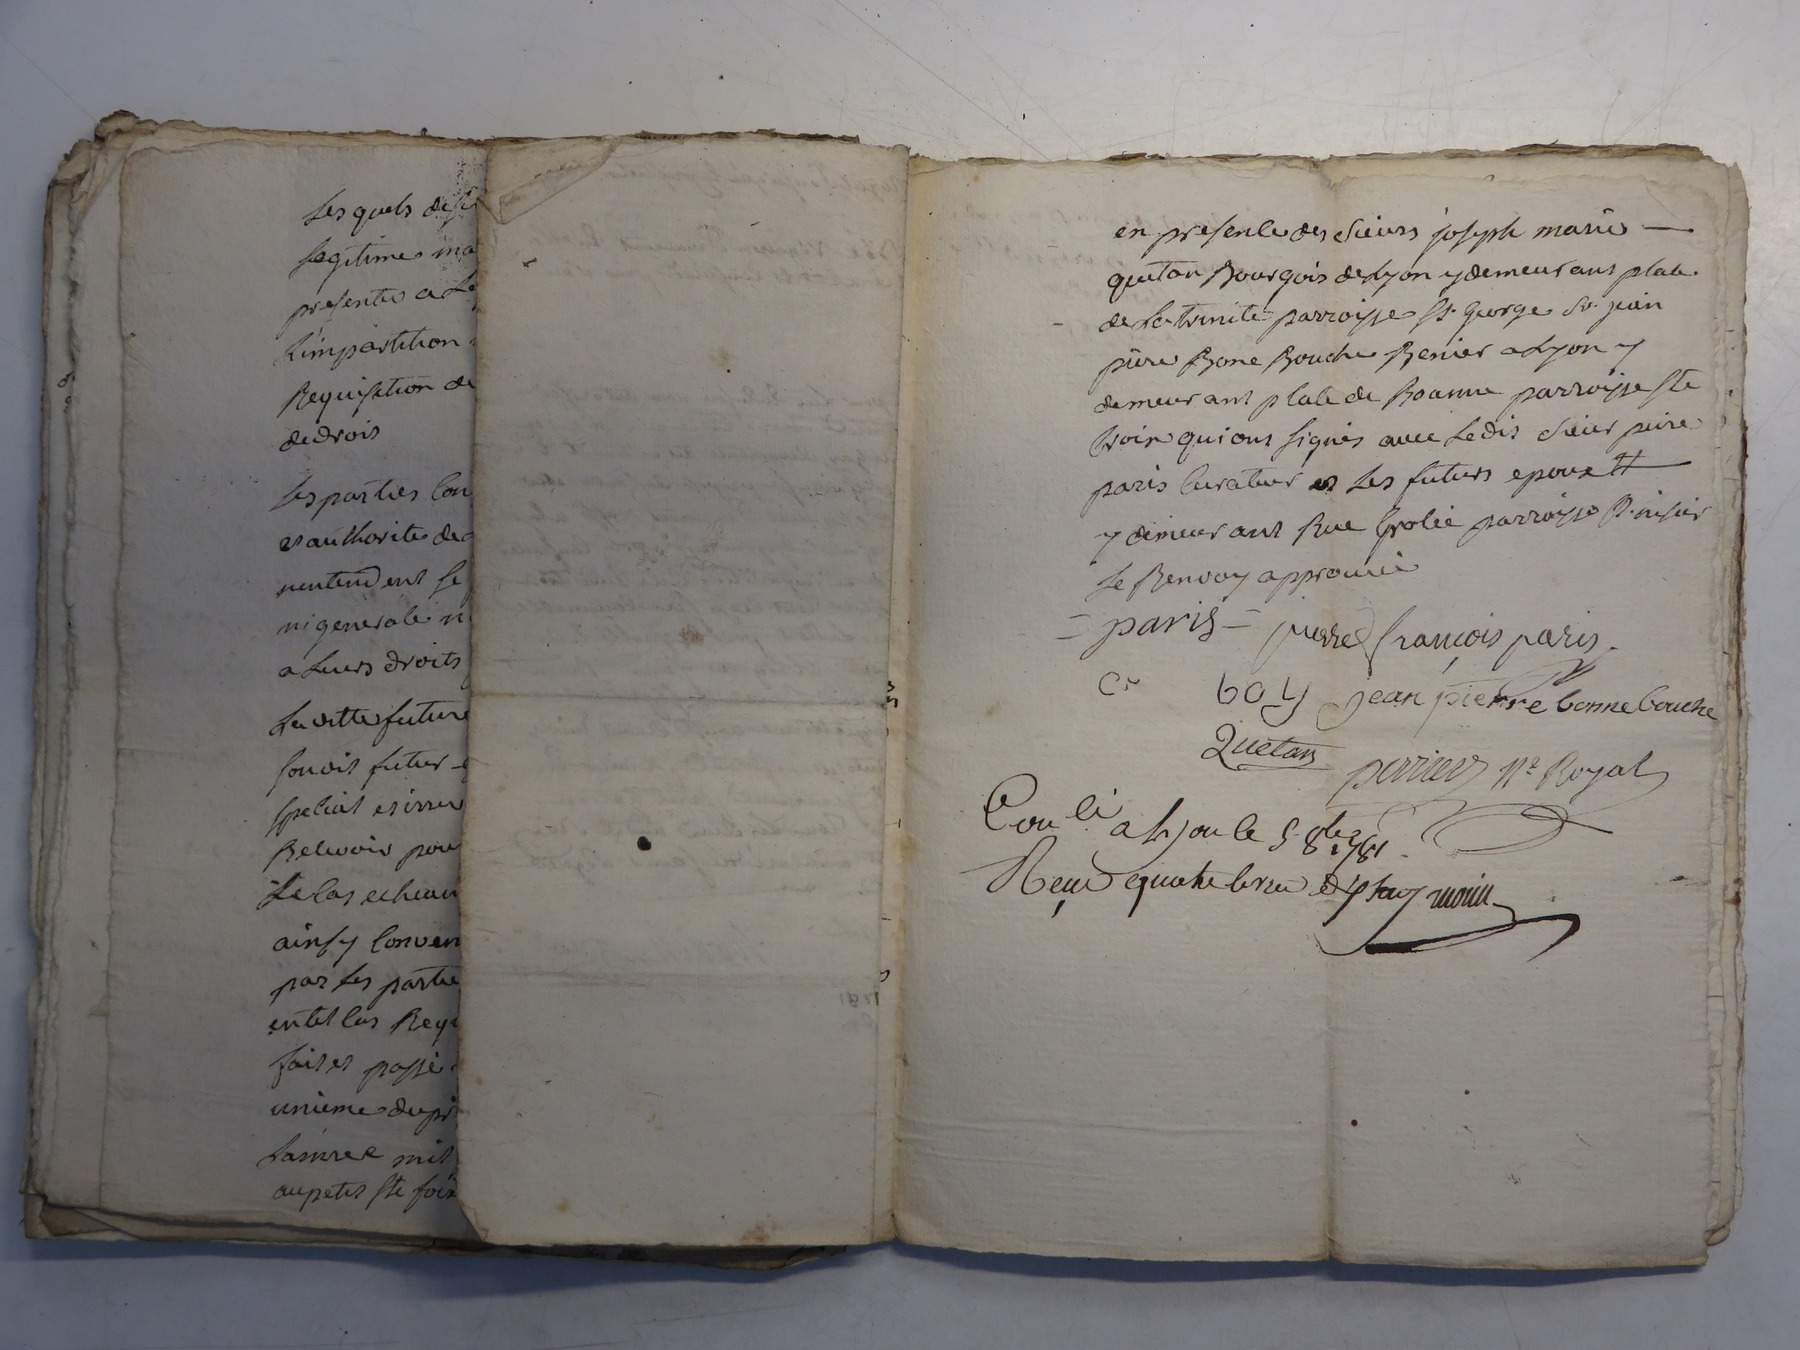 Les quels de
Legitime ma
presente a Le
L'impartition
Requisition de
de droit
Les parties Con
et authorite de
nentendent se
ni generale n
a Leurs droits
La ditte future
son dit futur
special et irrev
Recevoir pour
Le Cas echeant
ainsy Conven
par Les partie
entel Cas Requ
fait et passé
unieme du pr
Lannee mil
au petit Ste foix
en presence des Sieurs joseph marie —
quetan Bourgois de Lyon y demeurant place
de La trinite parroisse St. George Sr. jean
piere Bone Bouche Benier a Lyon y
demeurant place de Roanne parroisse Ste
Croix qui ont signés avec Ledit Sieur piere
paris Curateur et Les futurs epoux #
y demeurant Rue Grolée parroisse St. nisier
Le Renvoy approuvé
= paris = pierre françois paris.
Cr boy jean pierre bonnebouche
Quetan perrier Nre Royal
Con.lé a Lyon le 5. 8bre 1781.
Reçu quatre livres